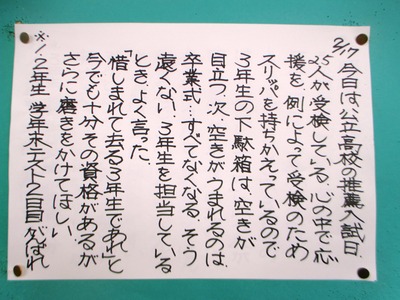 2/17 今日は、公立高校の推薦入試日.
25人が受検している.心の中で応
援を.例によって受検のため
スリッパを持ちかえっているので
3年生の下駄箱は、空きが
目立つ.次、空きがうまれるのは、
卒業式…すべてなくなる.そう
遠くない.3年生を担当している
とき、よく言った.
「惜しまれて去る3年生であれ」と
今でも十分その資格があるが、
さらに磨きをかけてほしい.
※1.2年生 学年末テスト2日目がんばれ